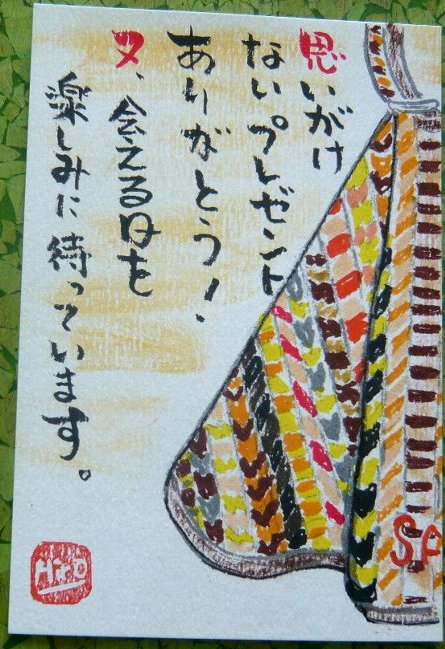 思いがけ
ないプレゼント
ありがとう!
又、会える日を
楽しみに待っています。
Hro
SP